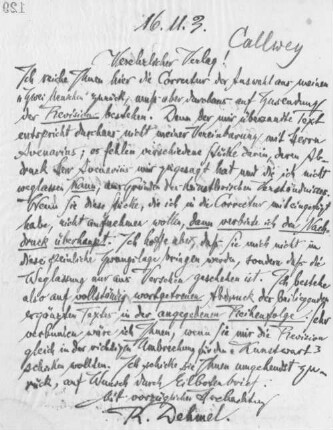 129
16.11.3.
Callwey
Verehrlicher Verlag!
Ich reiche Ihnen hier die Correctur der Auswahl aus meinen
"Zwei Menschen" zurück, muß aber durchaus auf Zusendung
der Revision bestehen. Denn der mir übersandte Text
entspricht durchaus nicht meiner Vereinbarung mit Herrn
Avenarius; es fehlen verschiedene Stücke darin, deren Ab-
druck Herr Avenarius mir zugesagt hat und die ich nicht
weglassen kann, aus Gründen des künstlerischen Verständnisses.
Wenn Sie diese Stücke, die ich in die Correctur mit eingefügt
habe, nicht aufnehmen wollen, dann verbiete ich den Nach-
druck überhaupt. Ich hoffe aber, daß Sie mich nicht in
diese peinliche Zwangslage bringen werden, sondern daß die
Weglassung nur aus Versehen geschehen ist. Ich bestehe
also auf vollständig wortgetreuen Abdruck der beiliegenden
ergänzten Texte, in der angegebenen Reihenfolge. Sehr
verbunden wäre ich Ihnen, wenn Sie mir die Revision
gleich in der richtigen Umbrechung für den Kunstwart
schicken wollten. Ich schicke sie Ihnen umgehendst zu-
rück, auf Wunsch durch Eilbotenbrief.
Mit vorzüglicher Hochachtung
R. Dehmel.